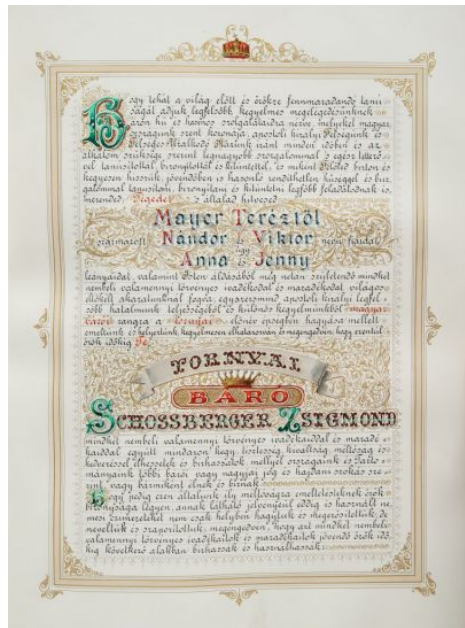 Hogy tehát a világ előtt és örökre fennmaradandó tanú-
ságát adjuk legfelsőbb kegyelmes megelégedésünknek
báron hű és hasznos szolgálataidra nézve, melyeket magyar
országunk szent koronája, apostoli királyi Felségünk és
Felséges Uralkodó Házunk iránt minden időben és az
álladalom szüksége szerint legnagyobb szorgalommal s egész tetterő-
vel tanúsítottál, bizonyítottál és kitüntettél,
kegyesen hisszük, jövendőben is hasonló rendíthetlen hűséggel és biz-
galommal tanúsítani, bizonyítani és kitüntetni legfőbb feladatodnak is-
merended, Tégedet s általad hitvesed
Mayer Teréztől
származott Nándor és Viktor nevű fiaidat
úgy Anna és Jenny
leányaidat, valamint Isten áldásából még netán születendő mindkét
nembeli valamennyi törvényes ivadékodat és maradékodat, világos
előkelt akaratunknál fogva, egyszersmind apostoli királyi legfel-
sőbb hatalmunk teljességéből és különös kegyelmünkből magyar
bárói rangra a tornyai előnév épségben hagyása mellett
emeltünk és helyeztünk, kegyelmesen elhatározván és megengedvén, hogy ezentúl
örök időkig Te
TORNYAI
BÁRÓ
SCHOSSBERGER ZSIGMOND
mindkét nembeli valamennyi törvényes ivadékaiddal és maradé-
kaiddal együtt mindazon jogy, tisztesség, kiváltság, méltóság és
kedvezéssel élhessetek és bírhassatok, mellyel országaink és Tarto-
mányaink többi bárói vagy nagyjai jog és hajdani szokás sze-
rint, vagy bármiként élnek és bírnak.
Hogy pedig ezen általunk ily méltóságra emeltetésteknek örök
bizonysága légyen, annak látható jelvényeül eddig is használt ne-
mesi címereteket nem csak helyben hagytuk és megerősítettük, de
neveltük is és szaporítottuk, megengedvén, hogy azt mindkét nembeli
valamennyi törvényes ivadékaitok és maradékaitok jövendő örök idő-
kig következő alakban bírhassák és használhassák: